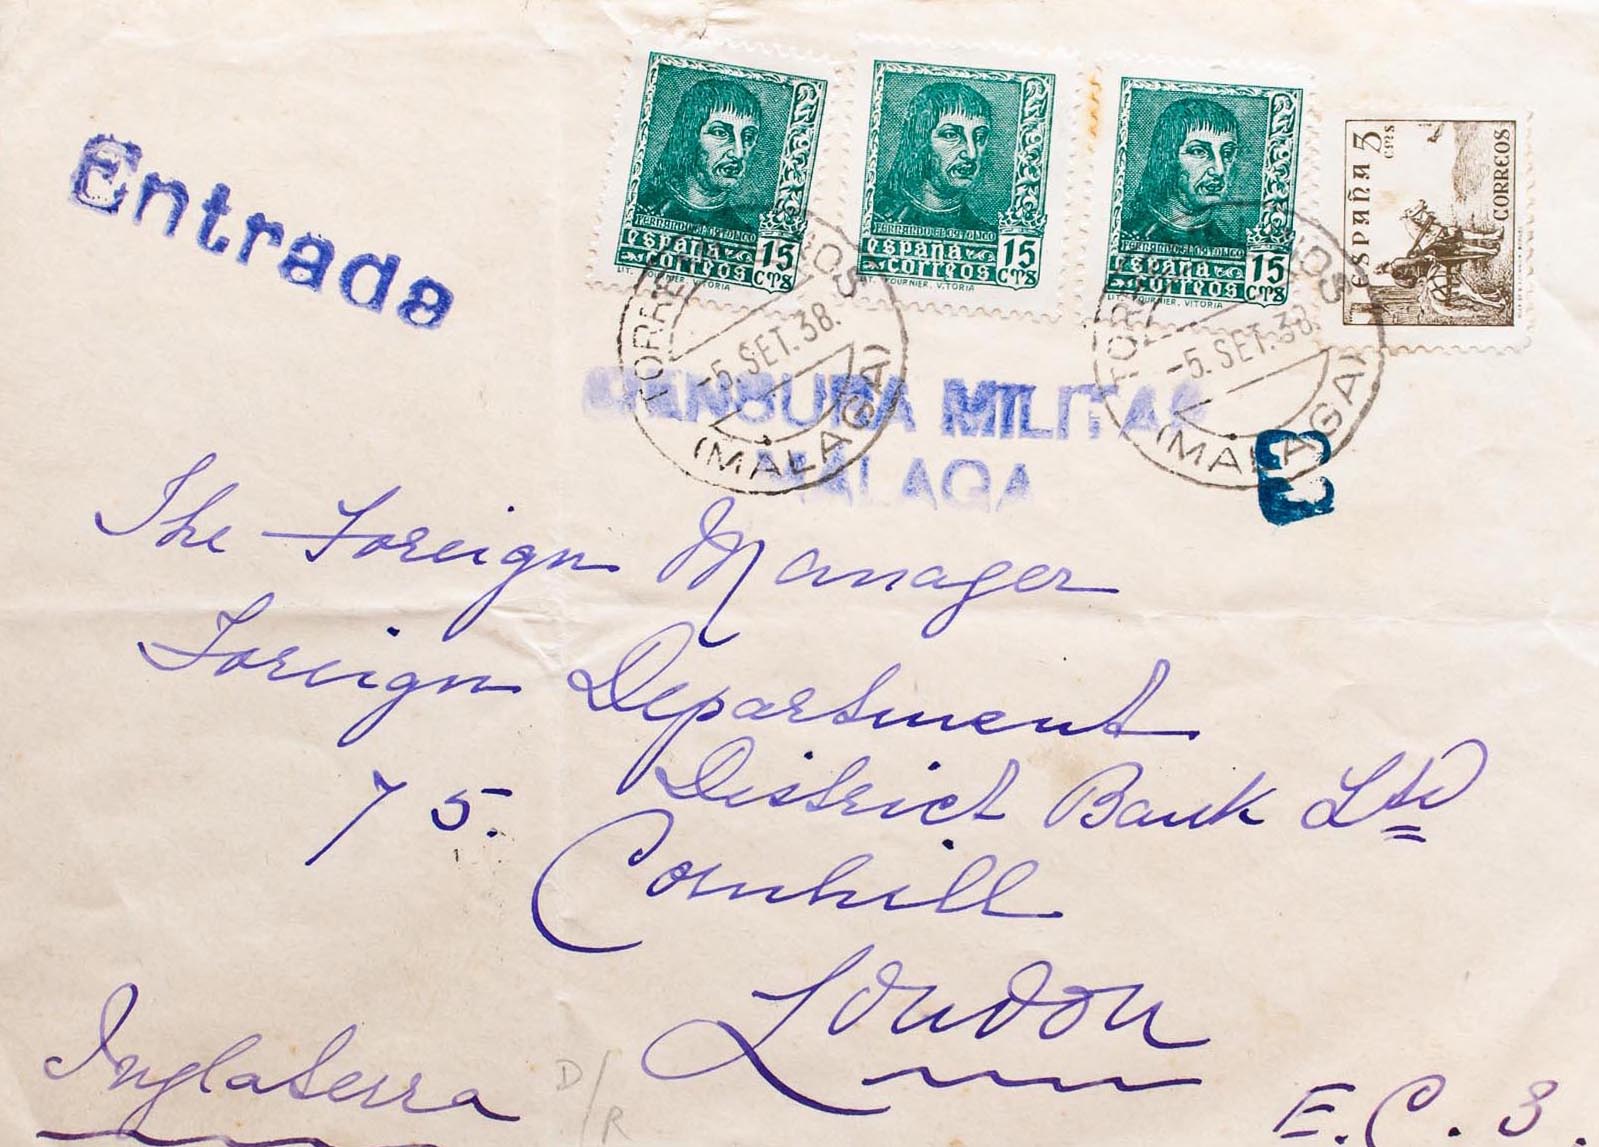 Entrada
FERNANDO EL CATOLICO
españa
correos
15
CTS
LIT. FOURNIER. VITORIA
FERNANDO EL CATOLICO
españa
correos
15
CTS
LIT. FOURNIER. VITORIA
FERNANDO EL CATOLICO
españa
correos
15
CTS
LIT. FOURNIER. VITORIA
ESPAÑA 5 CTS
CORREOS
-5. SET. 38.
(MALAGA)
-5. SET. 38
(MALAGA)
CENSURA MILITAR
MALAGA
The Foreign Manager
Foreign Department
District Bank Ltd
75. Cornhill
London
E.C. 3.
Inglaterra
D/R